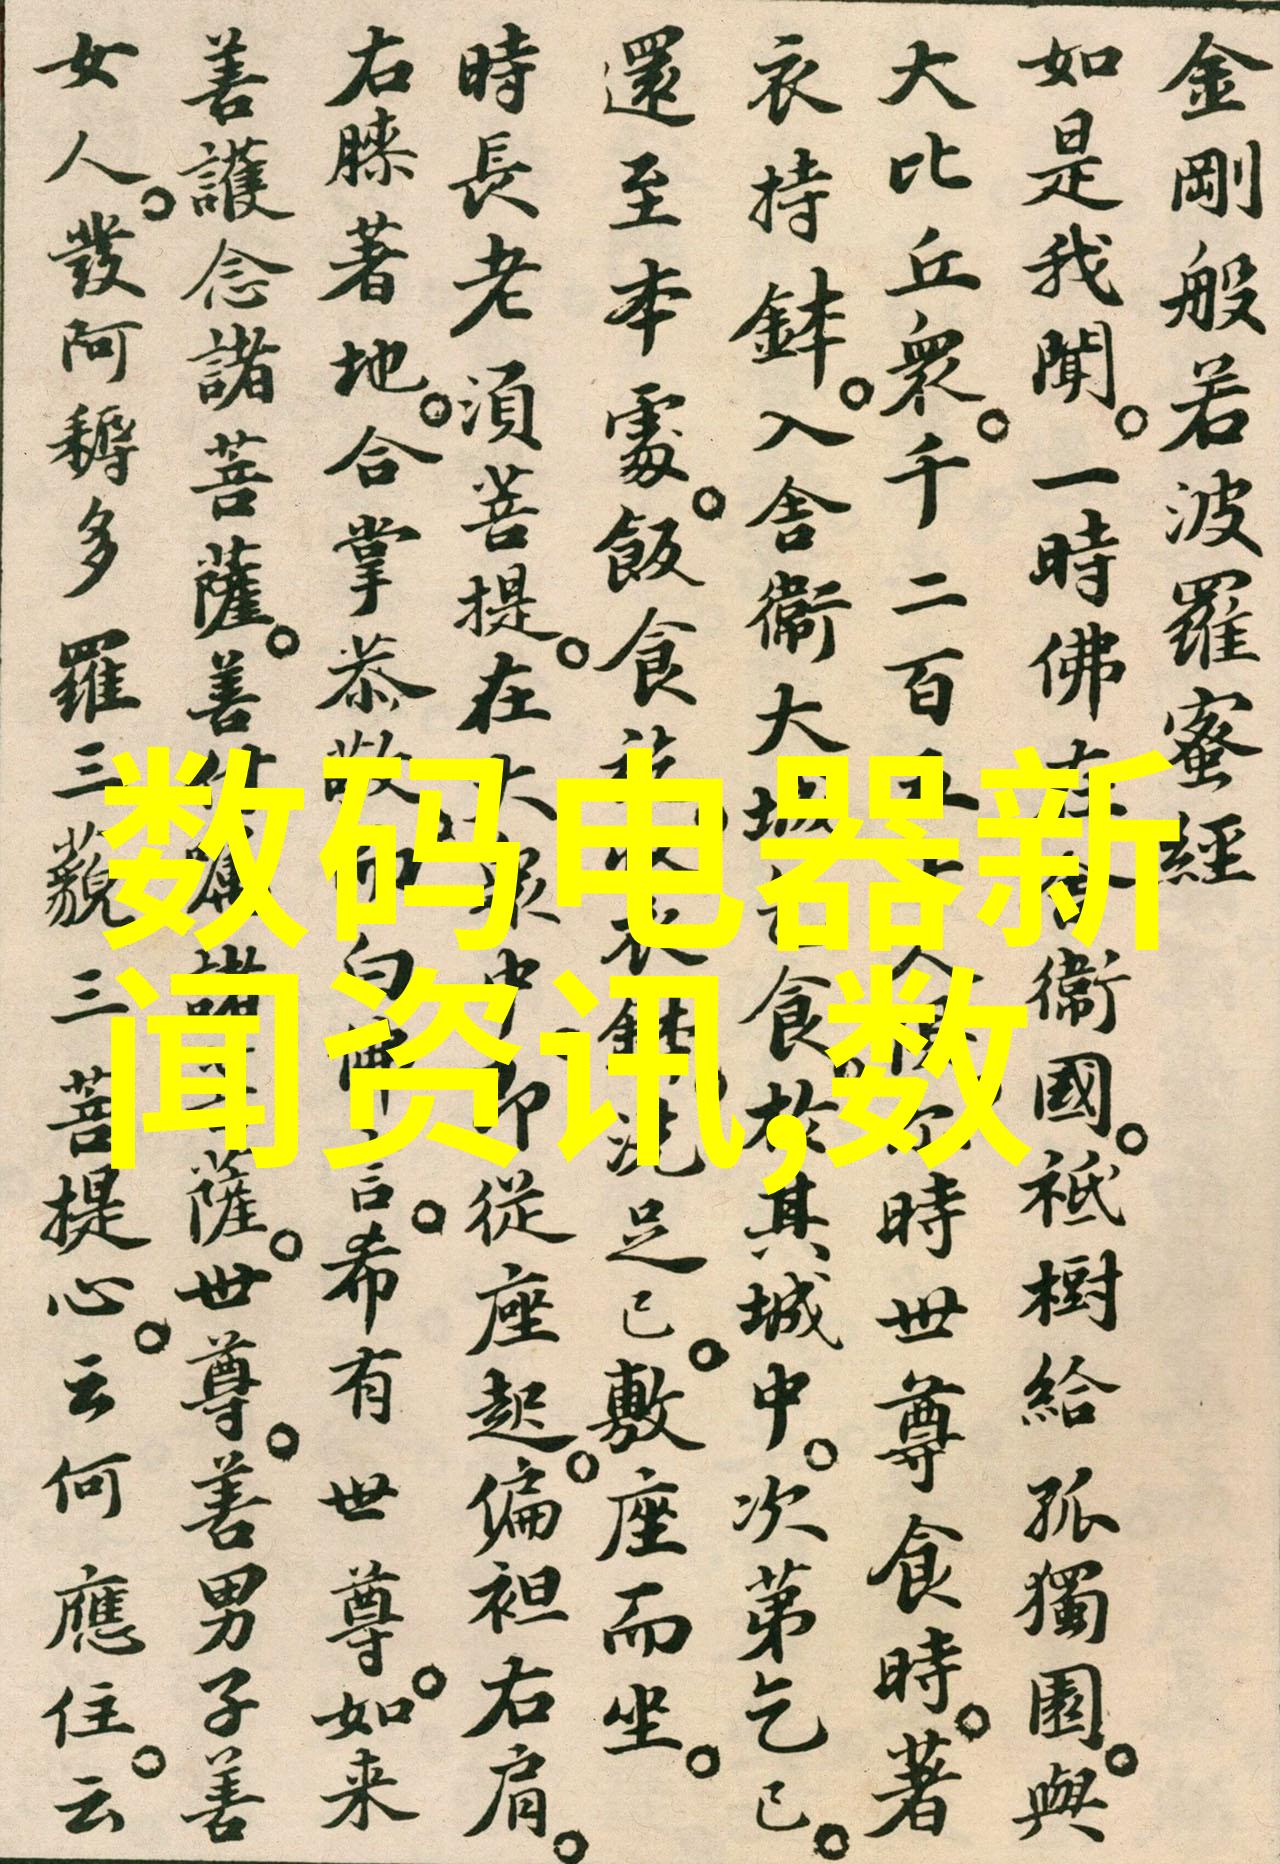 金剛般若波羅蜜經
如是我聞。一時佛在舍衞國。祇樹給孤獨園。與
大比丘衆。千二百五十人俱。尔時世尊食時。著
衣持鉢。入舍衞大城乞食。於其城中。次第乞已。
還至本處。飯食訖。收衣鉢。洗足已。敷座而坐。
時長老須菩提。在大衆中。即從座起。偏袒右肩。
右膝著地。合掌恭敬。而白佛言。希有世尊。如来
善護念諸菩薩。善付囑諸菩薩。世尊。善男子善
女人。發阿耨多羅三藐三菩提心。云何應住。云
数码电器新
闻资讯,数